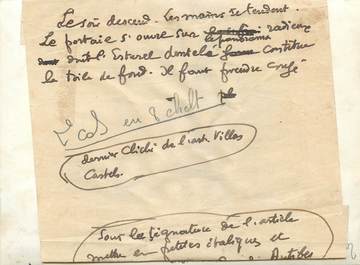 Le soir descend. Les mains se tendent.
Le portail s'ouvre sur le panorama radieux
dont l'Esterel dentelé constitue
la toile de fond. Il faut prendre congé
2 cols en 8
dernier Cliché de l'art. Villas
Castels.
Sous la signature de l'article
mettre en petites italiques et
Antibes